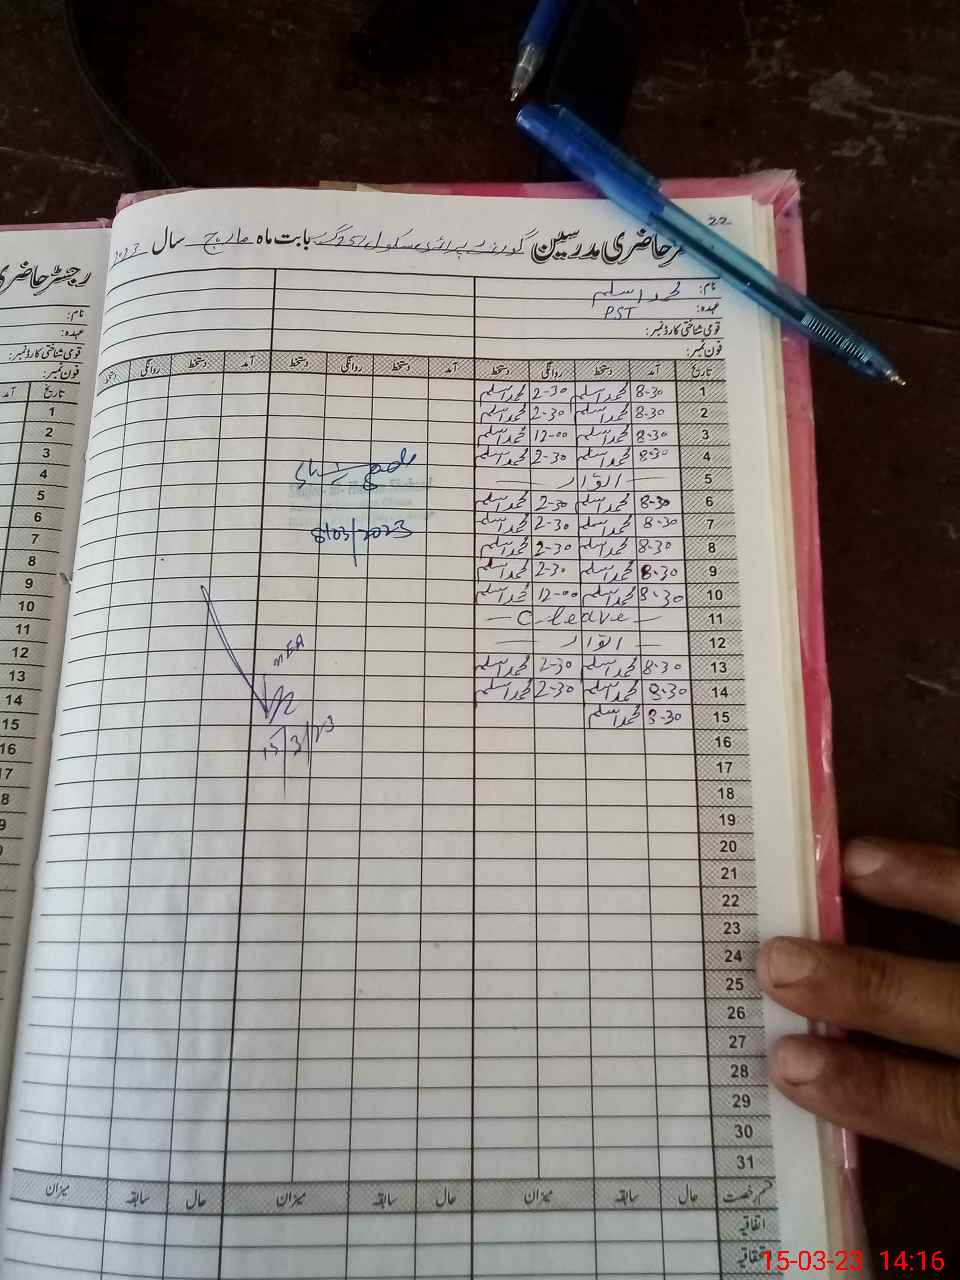 22
رجسٹر حاضری مدرسین گورنمنٹ پرائمری سکول بابت ماہ مارچ سال 2023
نام: محمد اسلم
عہدہ: PST
قومی شناختی کارڈ نمبر:
فون نمبر:
تاریخ آمد دستخط روانگی دستخط آمد دستخط روانگی دستخط آمد دستخط روانگی دستخط
1 8-30 محمد اسلم 2-30 محمد اسلم
2 8-30 محمد اسلم 2-30 محمد اسلم
3 8-30 محمد اسلم 12-00 محمد اسلم
4 8-30 محمد اسلم 2-30 محمد اسلم
5 — اتوار —
6 8-30 محمد اسلم 2-30 محمد اسلم
7 8-30 محمد اسلم 2-30 محمد اسلم
8 8-30 محمد اسلم 2-30 محمد اسلم
9 8-30 محمد اسلم 2-30 محمد اسلم
10 8-30 محمد اسلم 12-00 محمد اسلم
11 — C-leave —
12 — اتوار —
13 8-30 محمد اسلم 2-30 محمد اسلم
14 8-30 محمد اسلم 2-30 محمد اسلم
15 8-30 محمد اسلم
16
17
18
19
20
21
22
23
24
25
26
27
28
29
30
31
قسم رخصت حال سابقہ میزان حال سابقہ میزان حال سابقہ میزان
اتفاقیہ
8/03/2023
MEA
15/3/23
رجسٹر حاضری
نام:
عہدہ:
قومی شناختی کارڈ نمبر:
فون نمبر:
تاریخ آمد
1
2
3
4
5
6
7
8
9
10
11
12
13
14
15
16
15-03-23 14:16